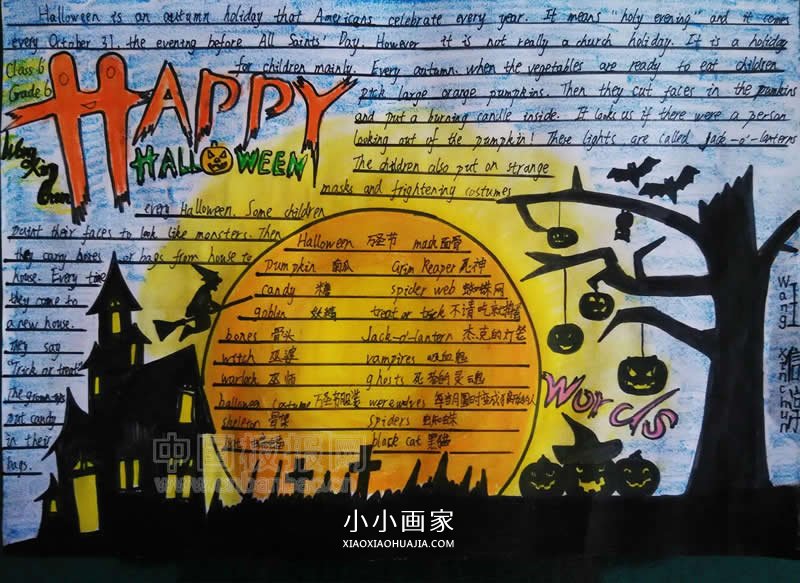 Halloween is an autumn holiday that Americans celebrate every year. It means "holy evening" and it comes
every October 31. the evening before All Saints' Day. However it is not really a church holiday. It is a holiday
for children mainly. Every autumn. when the vegetables are ready to eat children
pick large orange pumpkins. Then they cut faces in the pumkins
and put a burning candle inside. It looks us if there were a person
looking out of the pumpkin! These lights are called Jack-o'-lanterns
The children also put on strange
masks and frightening costumes
every Halloween. Some children
paint their faces to look like monsters. Then
they carry boxes or bags from house to
house. Every time
they come to
a new house.
they say
"Trick or treat!
The grown-ups
put candy
in their
bags.
Class 6
Grade 6
HAPPY
HALLOWEEN
Halloween 万圣节 mask 面骨
Pumpkin 南瓜 Grim Reaper 死神
candy 糖 spider web 蜘蛛网
goblin 妖精 treat or trick 不请吃就捣蛋
bones 骨头 Jack-o'-lantern 杰克的灯笼
witch 巫婆 vampires 吸血鬼
warlock 巫师 ghosts 死者的灵魂
halloween costume 万圣节服装 werewolves
skeleton 骨架 spiders 蜘蛛
black cat 黑猫
Words
Wang
中国板报网
小小画家
XIAOXIAOHUAJIA.COM